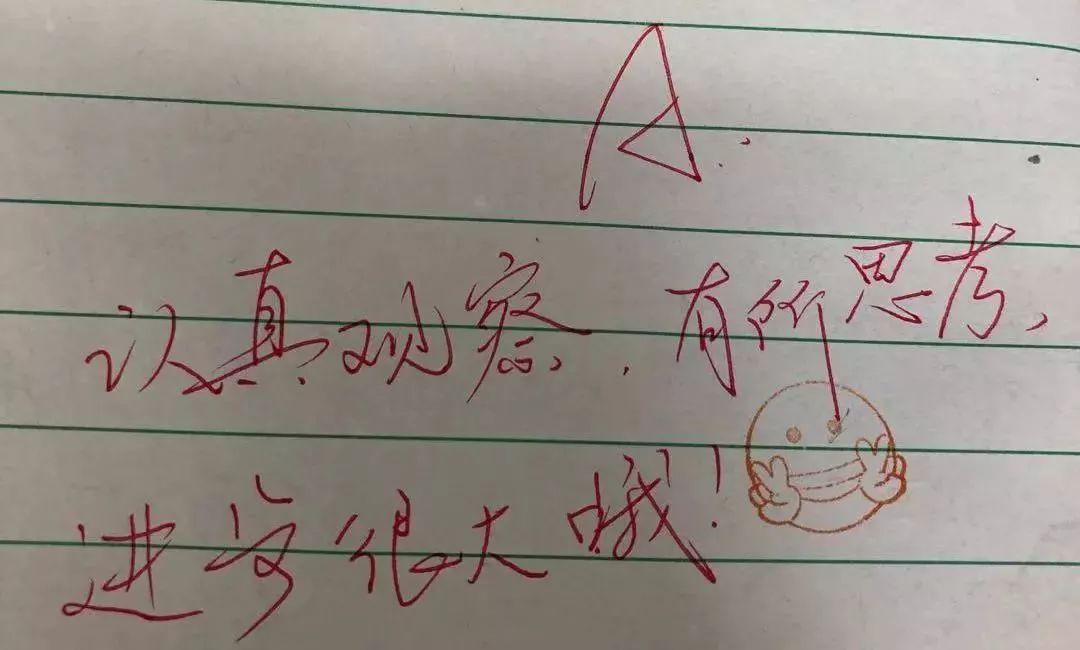 A
认真观察，有所思考，
进步很大哦！